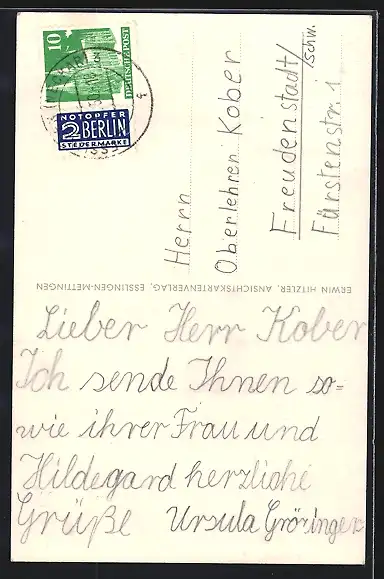 10
DEUTSCHE POST
NOTOPFER
2 BERLIN
STEUERMARKE
Herrn
Oberlehren Kober
Freudenstadt/schw.
Fürstenstr. 1
ERWIN HITZLER, ANSICHTSKARTENVERLAG, ESSLINGEN-METTINGEN
Lieber Herr Kober
Ich sende Ihnen so=
wie ihrer Frau und
Hildegard herzliche
Grüße Ursula Grözinger